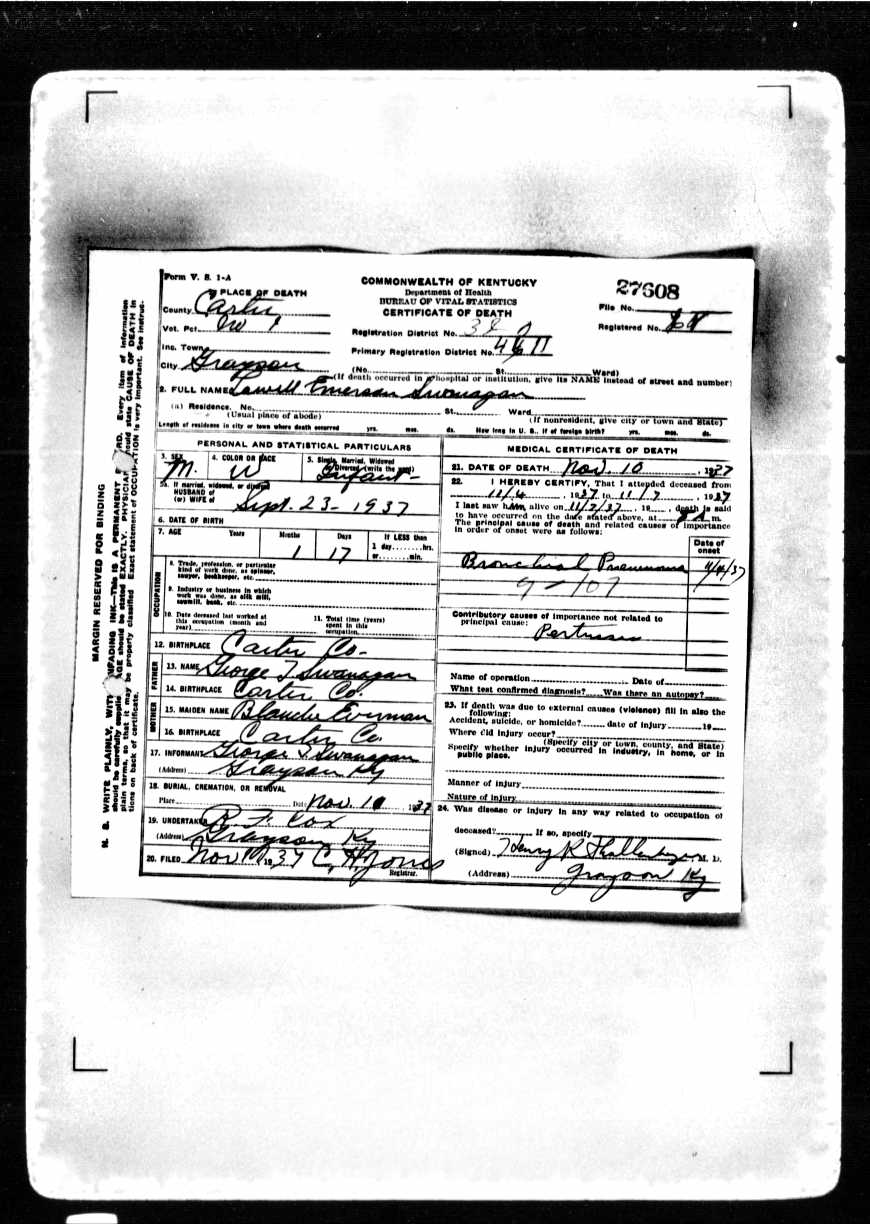 Form V. S. 1-A
COMMONWEALTH OF KENTUCKY
Department of Health
BUREAU OF VITAL STATISTICS
CERTIFICATE OF DEATH
27608
File No.
Registered No.
PLACE OF DEATH
County Carter
Vot. Pct. No 1
Registration District No.
Inc. Town
Primary Registration District No.
City Grayson
(No. St. Ward)
(If death occurred in a hospital or institution, give its NAME instead of street and number)
2. FULL NAME Lowell Emerson Swanagan
(a) Residence. No. St. Ward
(Usual place of abode)
(If nonresident, give city or town and State)
Length of residence in city or town where death occurred yrs. mos. ds. How long in U. S., if of foreign birth? yrs. mos. ds.
PERSONAL AND STATISTICAL PARTICULARS
3. SEX M.
4. COLOR OR RACE W
5. Single, Married, Widowed or Divorced (write the word) Infant
5a. If married, widowed, or divorced
HUSBAND of
(or) WIFE of
Sept. 23- 1937
6. DATE OF BIRTH
7. AGE Years Months Days If LESS than
1 17 1 day........hrs.
or........min.
OCCUPATION
8. Trade, profession, or particular
kind of work done, as spinner,
sawyer, bookkeeper, etc.
9. Industry or business in which
work was done, as silk mill,
sawmill, bank, etc.
10. Date deceased last worked at
this occupation (month and
year)
11. Total time (years)
spent in this
occupation
12. BIRTHPLACE Carter Co.
FATHER
13. NAME George T Swanagan
14. BIRTHPLACE Carter Co.
MOTHER
15. MAIDEN NAME Blanche Everman
16. BIRTHPLACE Carter Co.
17. INFORMANT George T Swanagan
(Address) Grayson Ky
18. BURIAL, CREMATION, OR REMOVAL
Place Date Nov. 1937
19. UNDERTAKER R. F. Cox
(Address) Grayson Ky
20. FILED Nov 1937 C. H. Jones
Registrar.
MEDICAL CERTIFICATE OF DEATH
21. DATE OF DEATH Nov. 10, 1937
22. I HEREBY CERTIFY, That I attended deceased from
11/4, 1937 to 11/7, 1937
I last saw him alive on 11/7/37, 19, death is said
to have occurred on the date stated above, at m.
The principal cause of death and related causes of importance
in order of onset were as follows:
Date of
onset
Bronchial Pneumonia 11/4/37
Contributory causes of importance not related to
principal cause:
Pertussis
Name of operation Date of
What test confirmed diagnosis? Was there an autopsy?
23. If death was due to external causes (violence) fill in also the
following:
Accident, suicide, or homicide? date of injury 19
Where did injury occur?
(Specify city or town, county, and State)
Specify whether injury occurred in industry, in home, or in
public place.
Manner of injury
Nature of injury
24. Was disease or injury in any way related to occupation of
deceased? If so, specify
(Signed) Henry R M. D.
(Address) Grayson Ky
MARGIN RESERVED FOR BINDING
N. B. WRITE PLAINLY, WITH UNFADING INK—THIS IS A PERMANENT RECORD. Every item of information
should be carefully supplied. AGE should be stated EXACTLY. PHYSICIANS should state CAUSE OF DEATH in
plain terms, so that it may be properly classified. Exact statement of OCCUPATION is very important. See instruc-
tions on back of certificate.